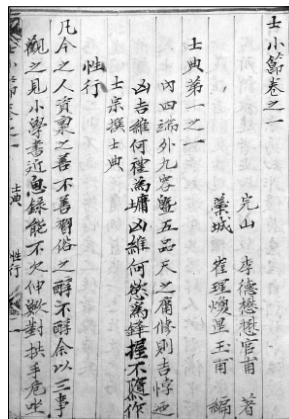 士小節卷之一
完山 李德懋懋官甫 著
蘂城 崔瑆煥星玉甫 編
士典第一之一
內四端外九容曁五品天之爾修則吉悖
凶吉維何禮為墉凶維何慾為鋒握不隳作
士宗撰士典
性行
凡今之人資稟之善不善習俗之醇不醇余以三事
觀之見小學書近思錄能不欠伸歟對拱手危坐
士典 性行